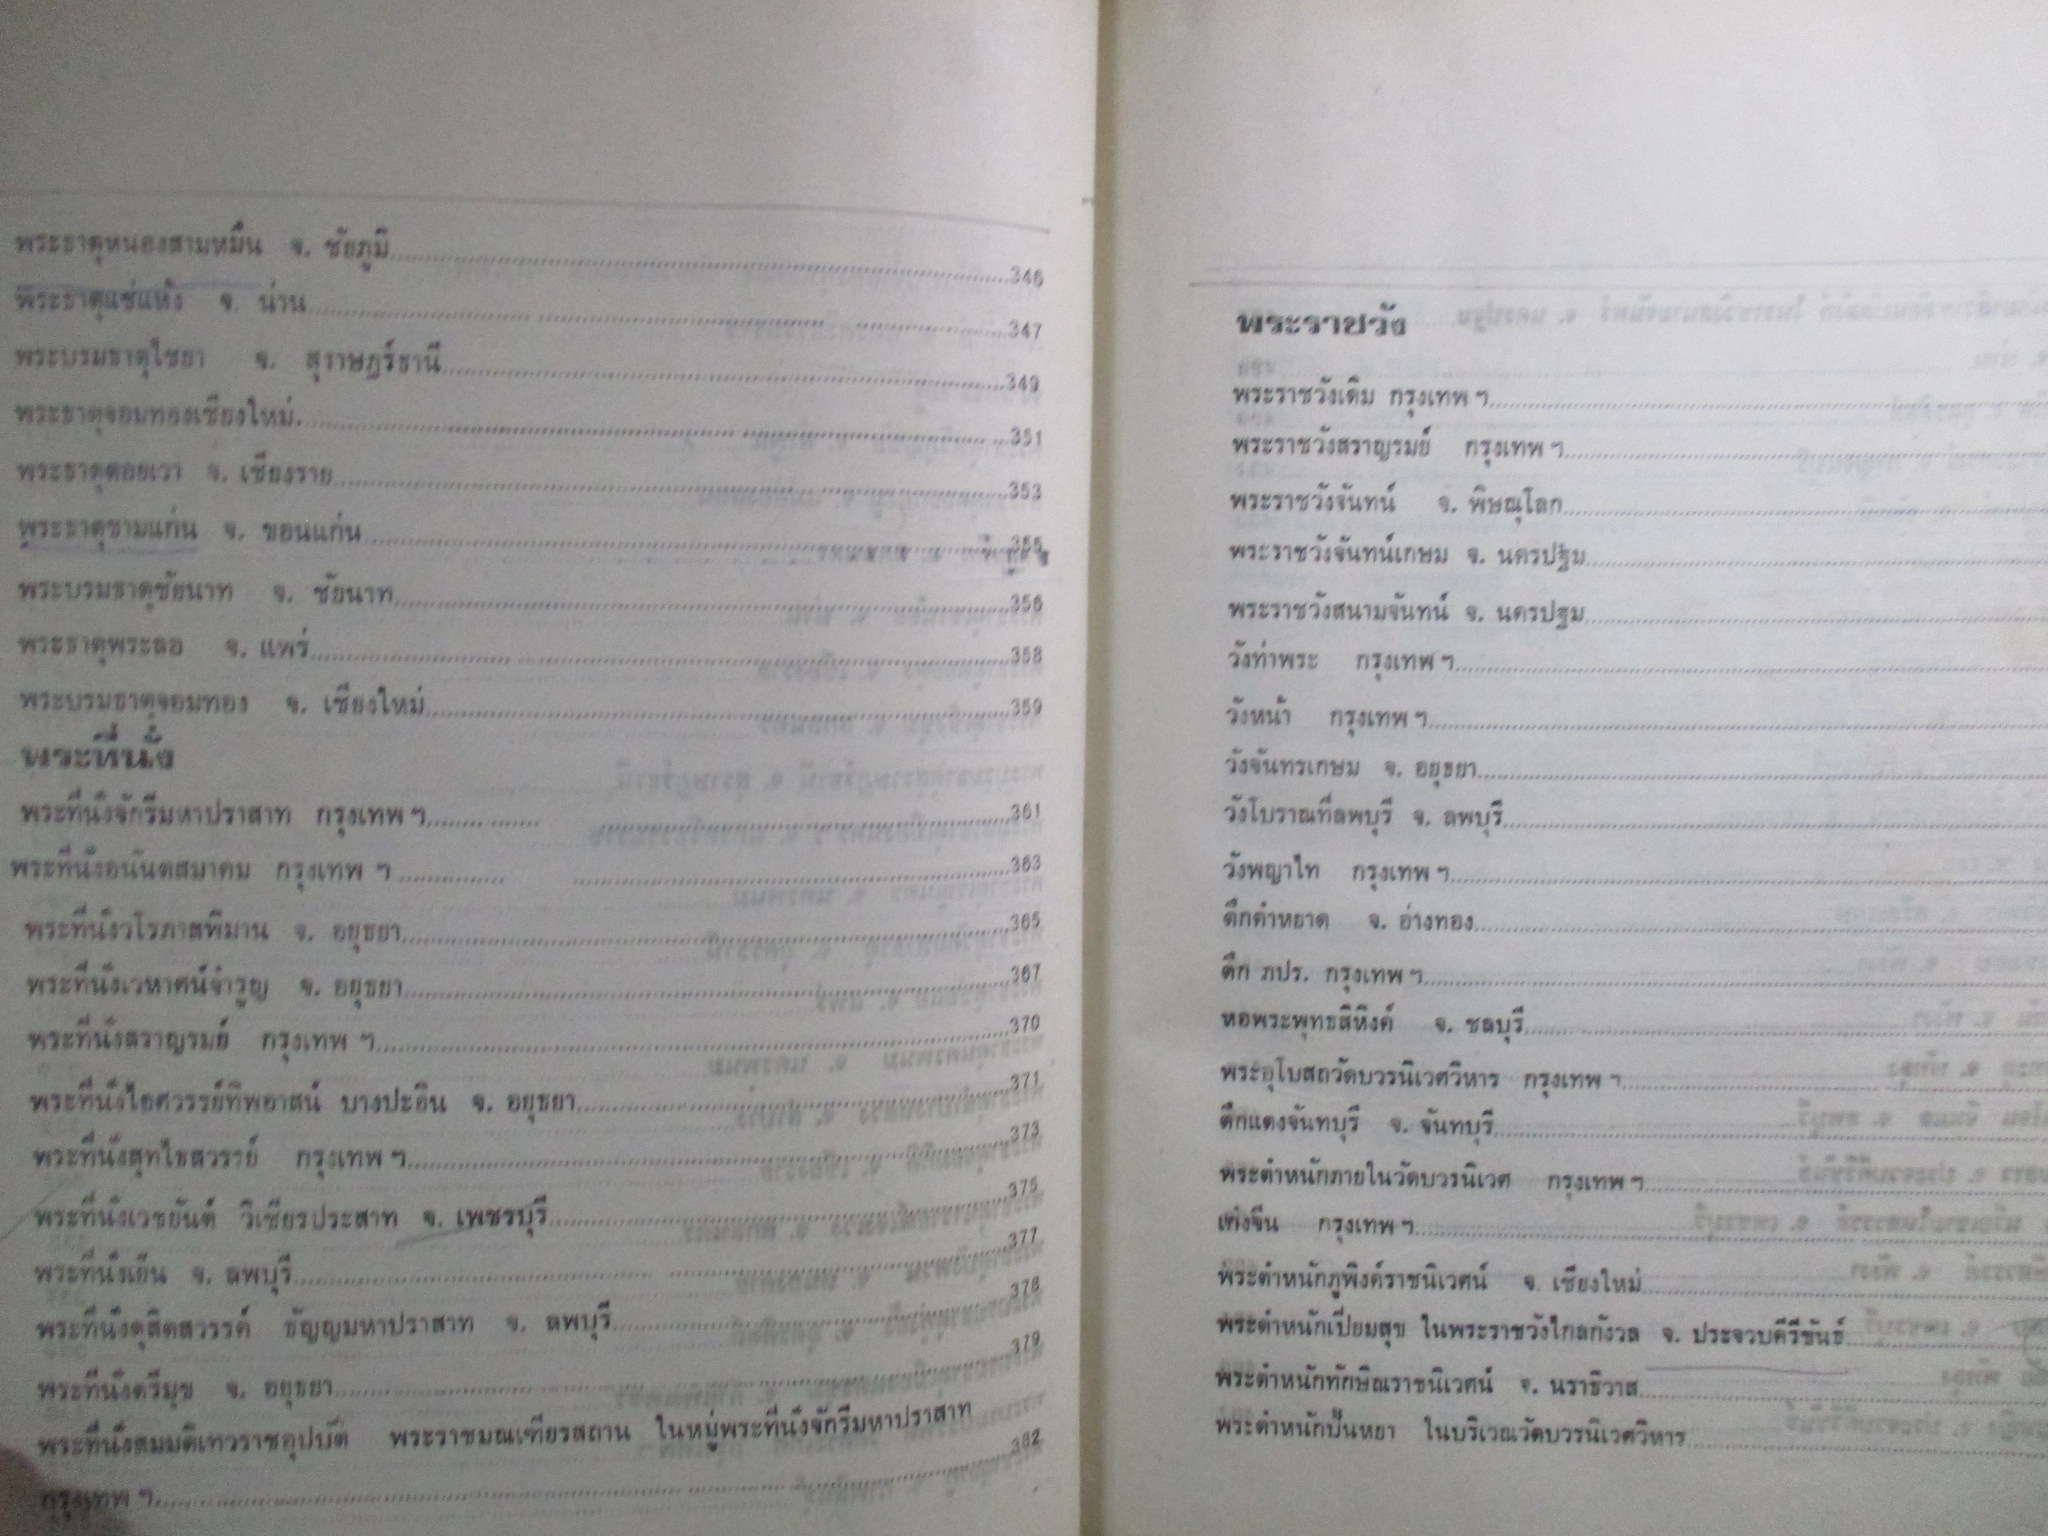 พระธาตุหนองสามหมื่น จ. ชัยภูมิ........346
พระธาตุแช่แห้ง จ. น่าน........347
พระบรมธาตุไชยา จ. สุราษฎร์ธานี........349
พระธาตุจอมทองเชียงใหม่.........351
พระธาตุดอยเวา จ. เชียงราย........353
พระธาตุขามแก่น จ. ขอนแก่น........355
พระบรมธาตุชัยนาท จ. ชัยนาท........356
พระธาตุพระลอ จ. แพร่........358
พระบรมธาตุจอมทอง จ. เชียงใหม่........359
พระที่นั่ง
พระที่นั่งจักรีมหาปราสาท กรุงเทพ ฯ........361
พระที่นั่งอนันตสมาคม กรุงเทพ ฯ........363
พระที่นั่งวโรภาสพิมาน จ. อยุธยา........365
พระที่นั่งเวหาศน์จำรูญ จ. อยุธยา........367
พระที่นั่งสราญรมย์ กรุงเทพ ฯ........370
พระที่นั่งไอศวรรย์ทิพอาสน์ บางปะอิน จ. อยุธยา........371
พระที่นั่งสุทไธสวรรย์ กรุงเทพ ฯ........373
พระที่นั่งเวชยันต์ วิเชียรประสาท จ. เพชรบุรี........375
พระที่นั่งเย็น จ. ลพบุรี........377
พระที่นั่งดุสิตสวรรค์ ธัญญมหาปราสาท จ. ลพบุรี........378
พระที่นั่งตรีมุข จ. อยุธยา........379
พระที่นั่งสมมติเทวราชอุปบัติ พระราชมณเฑียรสถาน ในหมู่พระที่นั่งจักรีมหาปราสาท
กรุงเทพ ฯ........382
พระราชวัง
พระราชวังเดิม กรุงเทพ ฯ........
พระราชวังสราญรมย์ กรุงเทพ ฯ........
พระราชวังจันทน์ จ. พิษณุโลก........
พระราชวังจันทน์เกษม จ. นครปฐม........
พระราชวังสนามจันทน์ จ. นครปฐม........
วังท่าพระ กรุงเทพ ฯ........
วังหน้า กรุงเทพ ฯ........
วังจันทรเกษม จ. อยุธยา........
วังโบราณที่ลพบุรี จ. ลพบุรี........
วังพญาไท กรุงเทพ ฯ........
ตึกคำหยาด จ. อ่างทอง........
ตึก ภปร. กรุงเทพ ฯ........
หอพระพุทธสิหิงค์ จ. ชลบุรี........
พระอุโบสถวัดบวรนิเวศวิหาร กรุงเทพ ฯ........
ตึกแดงจันทบุรี จ. จันทบุรี........
พระตำหนักภายในวัดบวรนิเวศ กรุงเทพ ฯ........
เก๋งจีน กรุงเทพ ฯ........
พระตำหนักภูพิงค์ราชนิเวศน์ จ. เชียงใหม่........
พระตำหนักเปี่ยมสุข ในพระราชวังไกลกังวล จ. ประจวบคีรีขันธ์........
พระตำหนักทักษิณราชนิเวศน์ จ. นราธิวาส........
พระตำหนักปั้นหยา ในบริเวณวัดบวรนิเวศวิหาร........